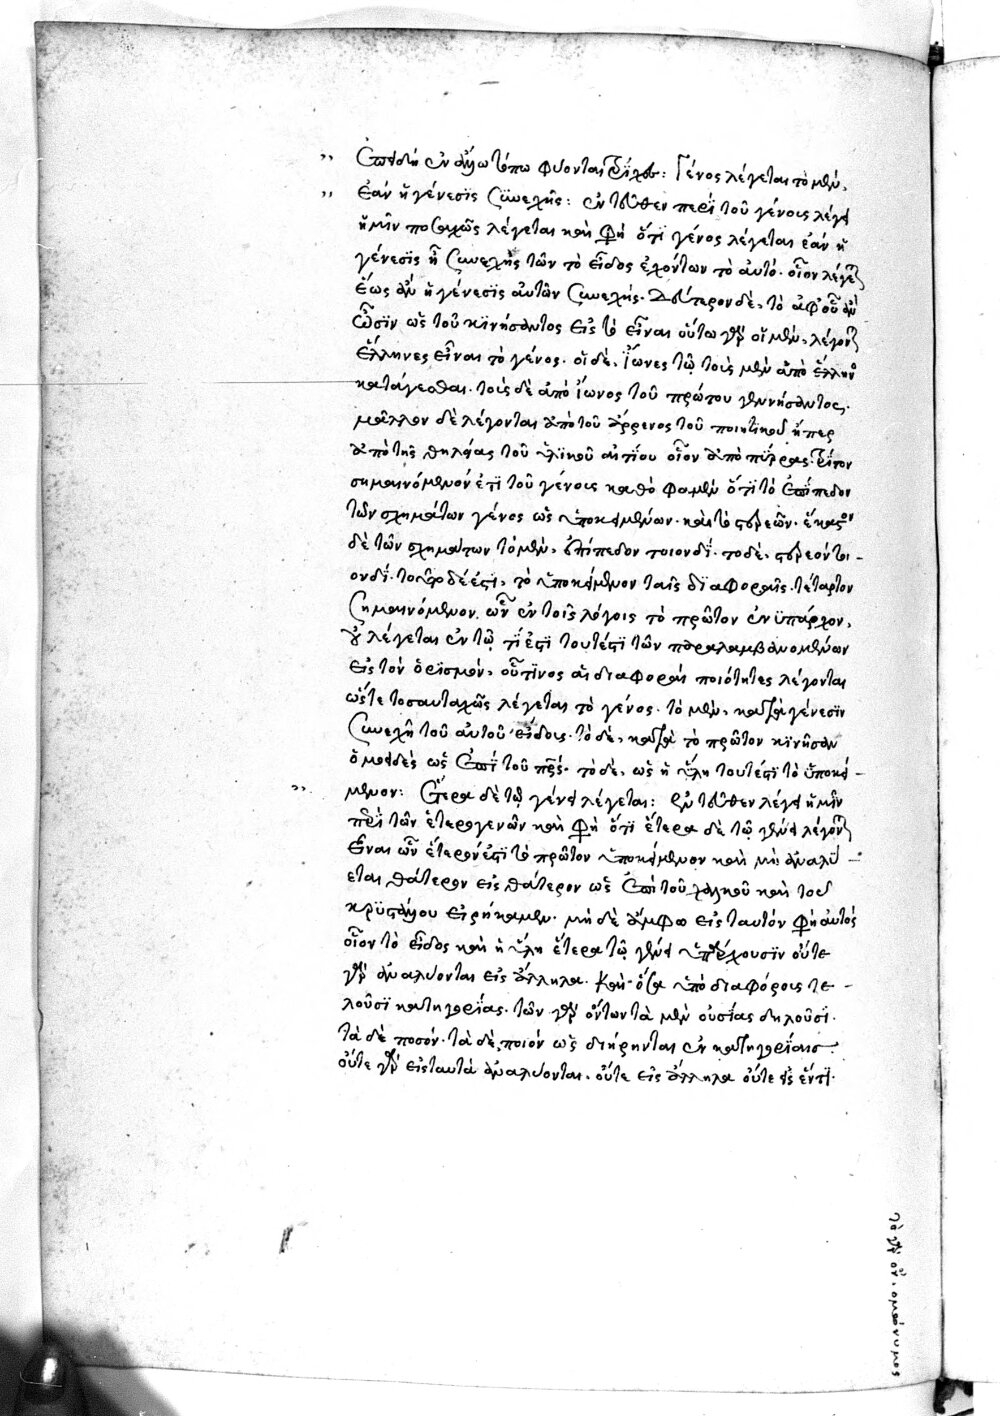 ἐπειδὴ ἐν ἄλλω τόπω φύονται τρίχες: Γένος λέγεται τὸ μὲν,
Ἐὰν ἡ γένεσϊς συνεχὴς: ἐντεῦθεν περὶ τοῦ γένους λέγει
ἡμῖν ποσαχῶς λέγεται καὶ φησὶ ὅτϊ γένος λέγεται ἐὰν ἡ
γένεσϊς ἦ συνεχὴς τῶν τὸ εἶδος ἐχόντων τὸ αὐτό. οἷον λέγεται
ἕως ἂν ἡ γένεσϊς αὐτῶν συνεχής. δεύτερον δὲ, τὸ ἀφ' οὗ ἂν
ὦσϊν ὡς τοῦ κϊνήσαντος εἰς τὸ εἶναι οὕτω γὰρ οἱ μὲν, λέγονται
ἕλληνες εἶναι τὸ γένος. οἱ δὲ, ἴωνες τῷ τοὺς μὲν ἀπὸ ἕλληνος
κατάγεσθαι. τοὺς δὲ ἀπὸ ἴωνος τοῦ πρώτου γεννήσαντος.
μᾶλλον δὲ λέγονται ἀπὸ τοῦ ἄρρενος τοῦ ποιητικοῦ ἤπερ
ἀπὸ τῆς θηλείας τοῦ ὑλϊκοῦ αἰτΐου οἷον ἀπὸ πύρρας. τρΐτον
σημαινόμενον ἐστὶ τοῦ γένους καθὸ φαμὲν ὅτϊ τὸ ἐπΐπεδον
τῶν σχημάτων γένος ὡς ὑποκειμένων. καὶ τὸ στερεὸν. ἕκαστον
δὲ τῶν σχημάτων τὸ μὲν, ἐπίπεδον τοιονδΐ. τὸ δὲ, στερεόν τοι-
ονδΐ. τοῦτο δέ ἐστϊ, τὸ ὑποκείμενον ταῖς δϊαφοραῖς. τέταρτον
σημαινόμενον ὡς ἐν τοῖς λόγοις τὸ πρῶτον ἐνϋπάρχον,
ὃ λέγεται ἐν τῷ τΐ ἐστϊ τουτέστϊ τῶν παραλαμβανομένων
εἰς τὸν ὁρϊσμὸν, οὗτϊνος αἱ διαφοραὶ ποιότητες λέγονται
ὥστε τοσαυταχῶς λέγεται τὸ γένος. τὸ μὲν, κατὰ γένεσϊν
συνεχῆ τοῦ αὐτοῦ εἴδους. τὸ δὲ, κατὰ τὸ πρῶτον κϊνῆσαν
ὁμοειδὲς ὡς ἐπῒ τοῦ πατρὸς. τὸ δὲ, ὡς ἡ ὕλη τουτέστϊ τὸ ὑποκεί-
μενον: Ἕτερα δὲ τῷ γένει λέγεται: ἐντεῦθεν λέγει ἡμῖν
περὶ τῶν ἑτερογενῶν καὶ φησὶ ὅτϊ ἕτερα δὲ τῷ γένει λέγονται
εἶναι ὧν ἕτερόν ἐστϊ τὸ πρῶτον ὑποκείμενον καὶ μὴ ἀναλύ-
εται θάτερον εἰς θάτερον ὡς ἐπὶ τοῦ χαλκοῦ καὶ τοῦ
κρϋστάλλου εἰρήκαμεν. μὴ δὲ ἄμφω εἰς ταυτόν φησὶ αὐτὸς
οἷον τὸ εἶδος καὶ ἡ ὕλη ἕτερα τῷ γένει ὑπάρχουσϊν οὔτε
γὰρ ἀναλύονται εἰς ἄλληλα. Καὶ ὅσα ὑπὸ διαφόρους τε-
λοῦσϊ κατηγορΐας. τῶν γὰρ ὄντων τὰ μὲν οὐσΐας δηλοῦσϊ.
τὰ δὲ ποσόν. τὰ δὲ ποιόν ὡς διήρηνται ἐν κατηγορΐαις.
οὔτε γὰρ εἰς ταυτὰ ἀναλύονται. οὔτε εἰς ἄλληλα οὔτε εἰς ἕν τϊ.
τὸ γὰρ ὂν. ὁμώνυμος